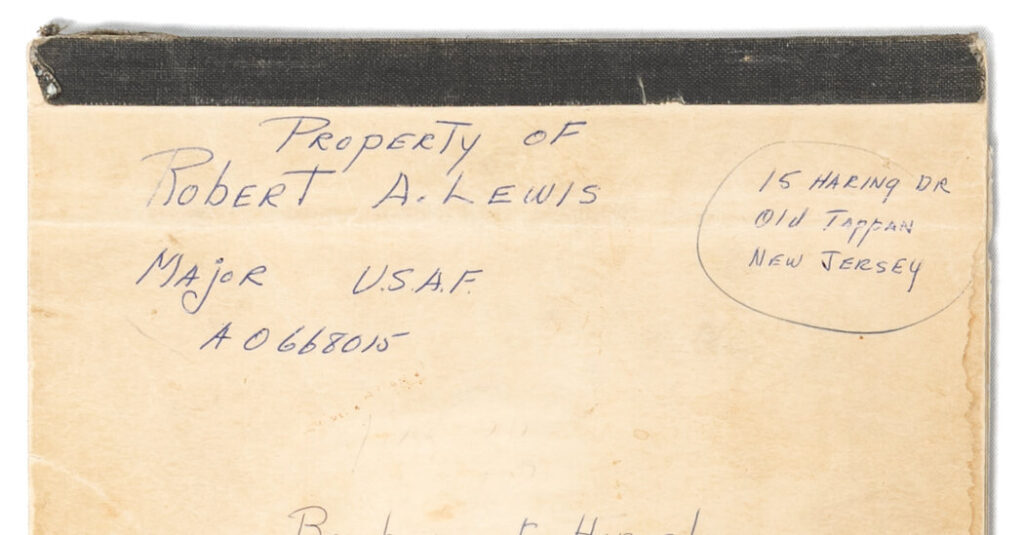 PROPERTY OF
ROBERT A. LEWIS
MAJOR U.S.A.F.
A0668015
15 HARING DR
Old TAPPAN
NEW JERSEY